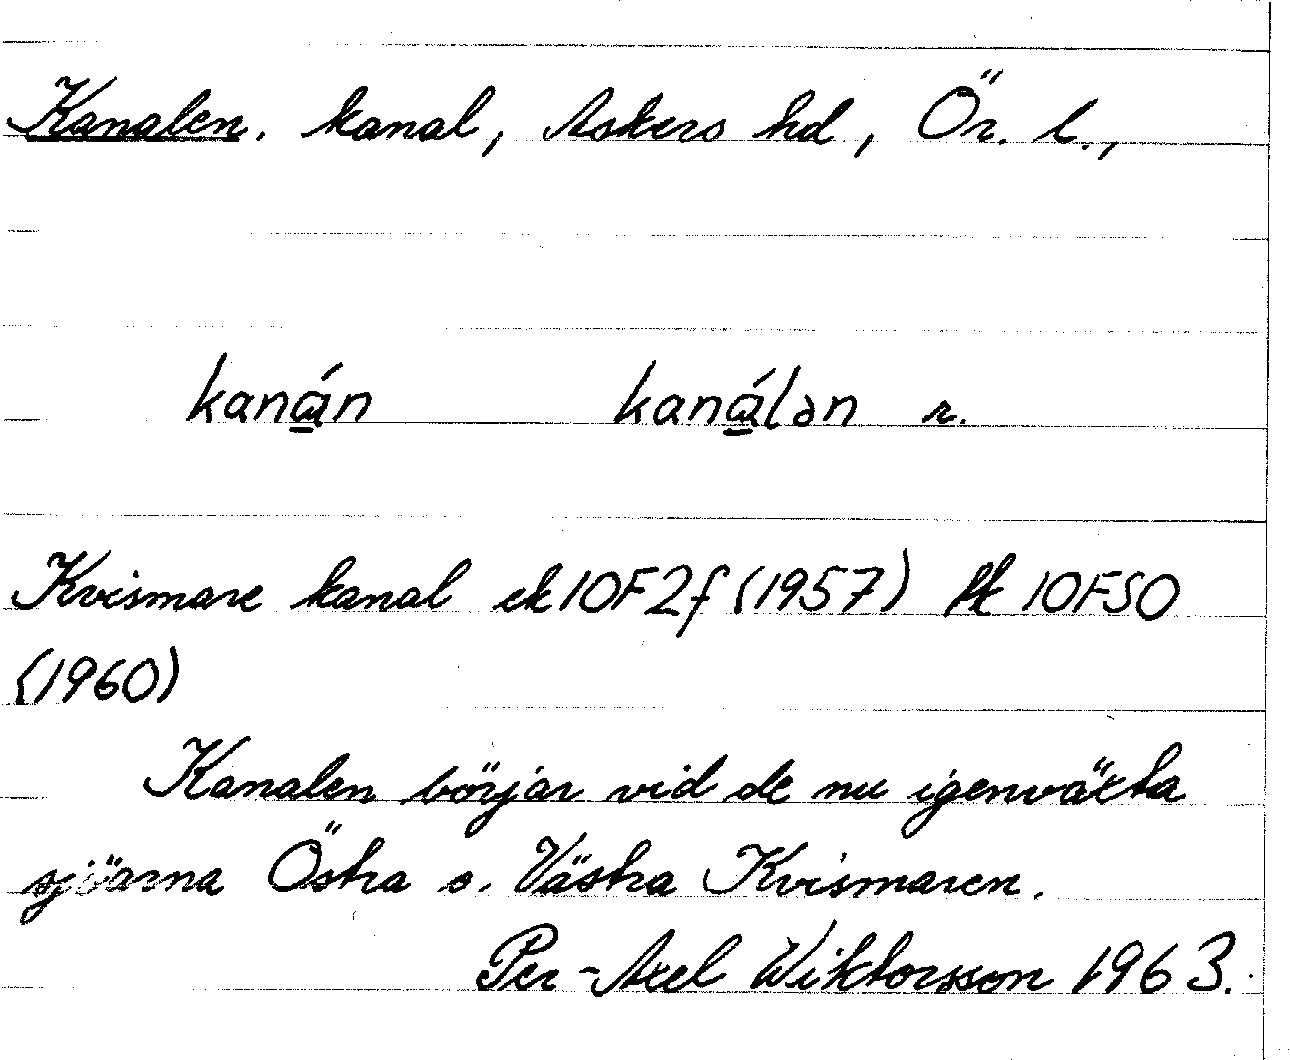 Kanalen. kanal, Askers hd, Ör. l.,
kanά̱n kanά̱lən r.
Kvismare kanal ek 10F2f (1957) tk 10FSO
(1960)
Kanalen börjar vid de nu igenväxta
sjöarna Östra o. Västra Kvismaren.
Per-Axel Wiktorsson 1963.